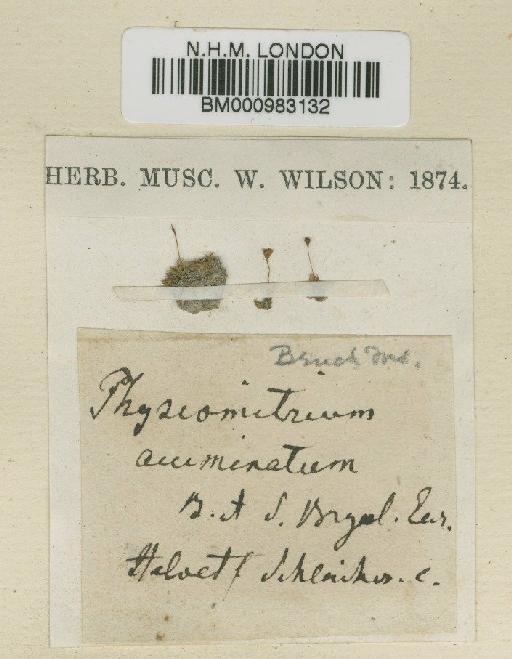 N.H.M. LONDON
BM000983132
HERB. MUSC. W. WILSON: 1874.
Bruch ms.
Physcomitrium
acuminatum
B. & S. Bryol. Eur.
Helvet/ Schleicher. c.